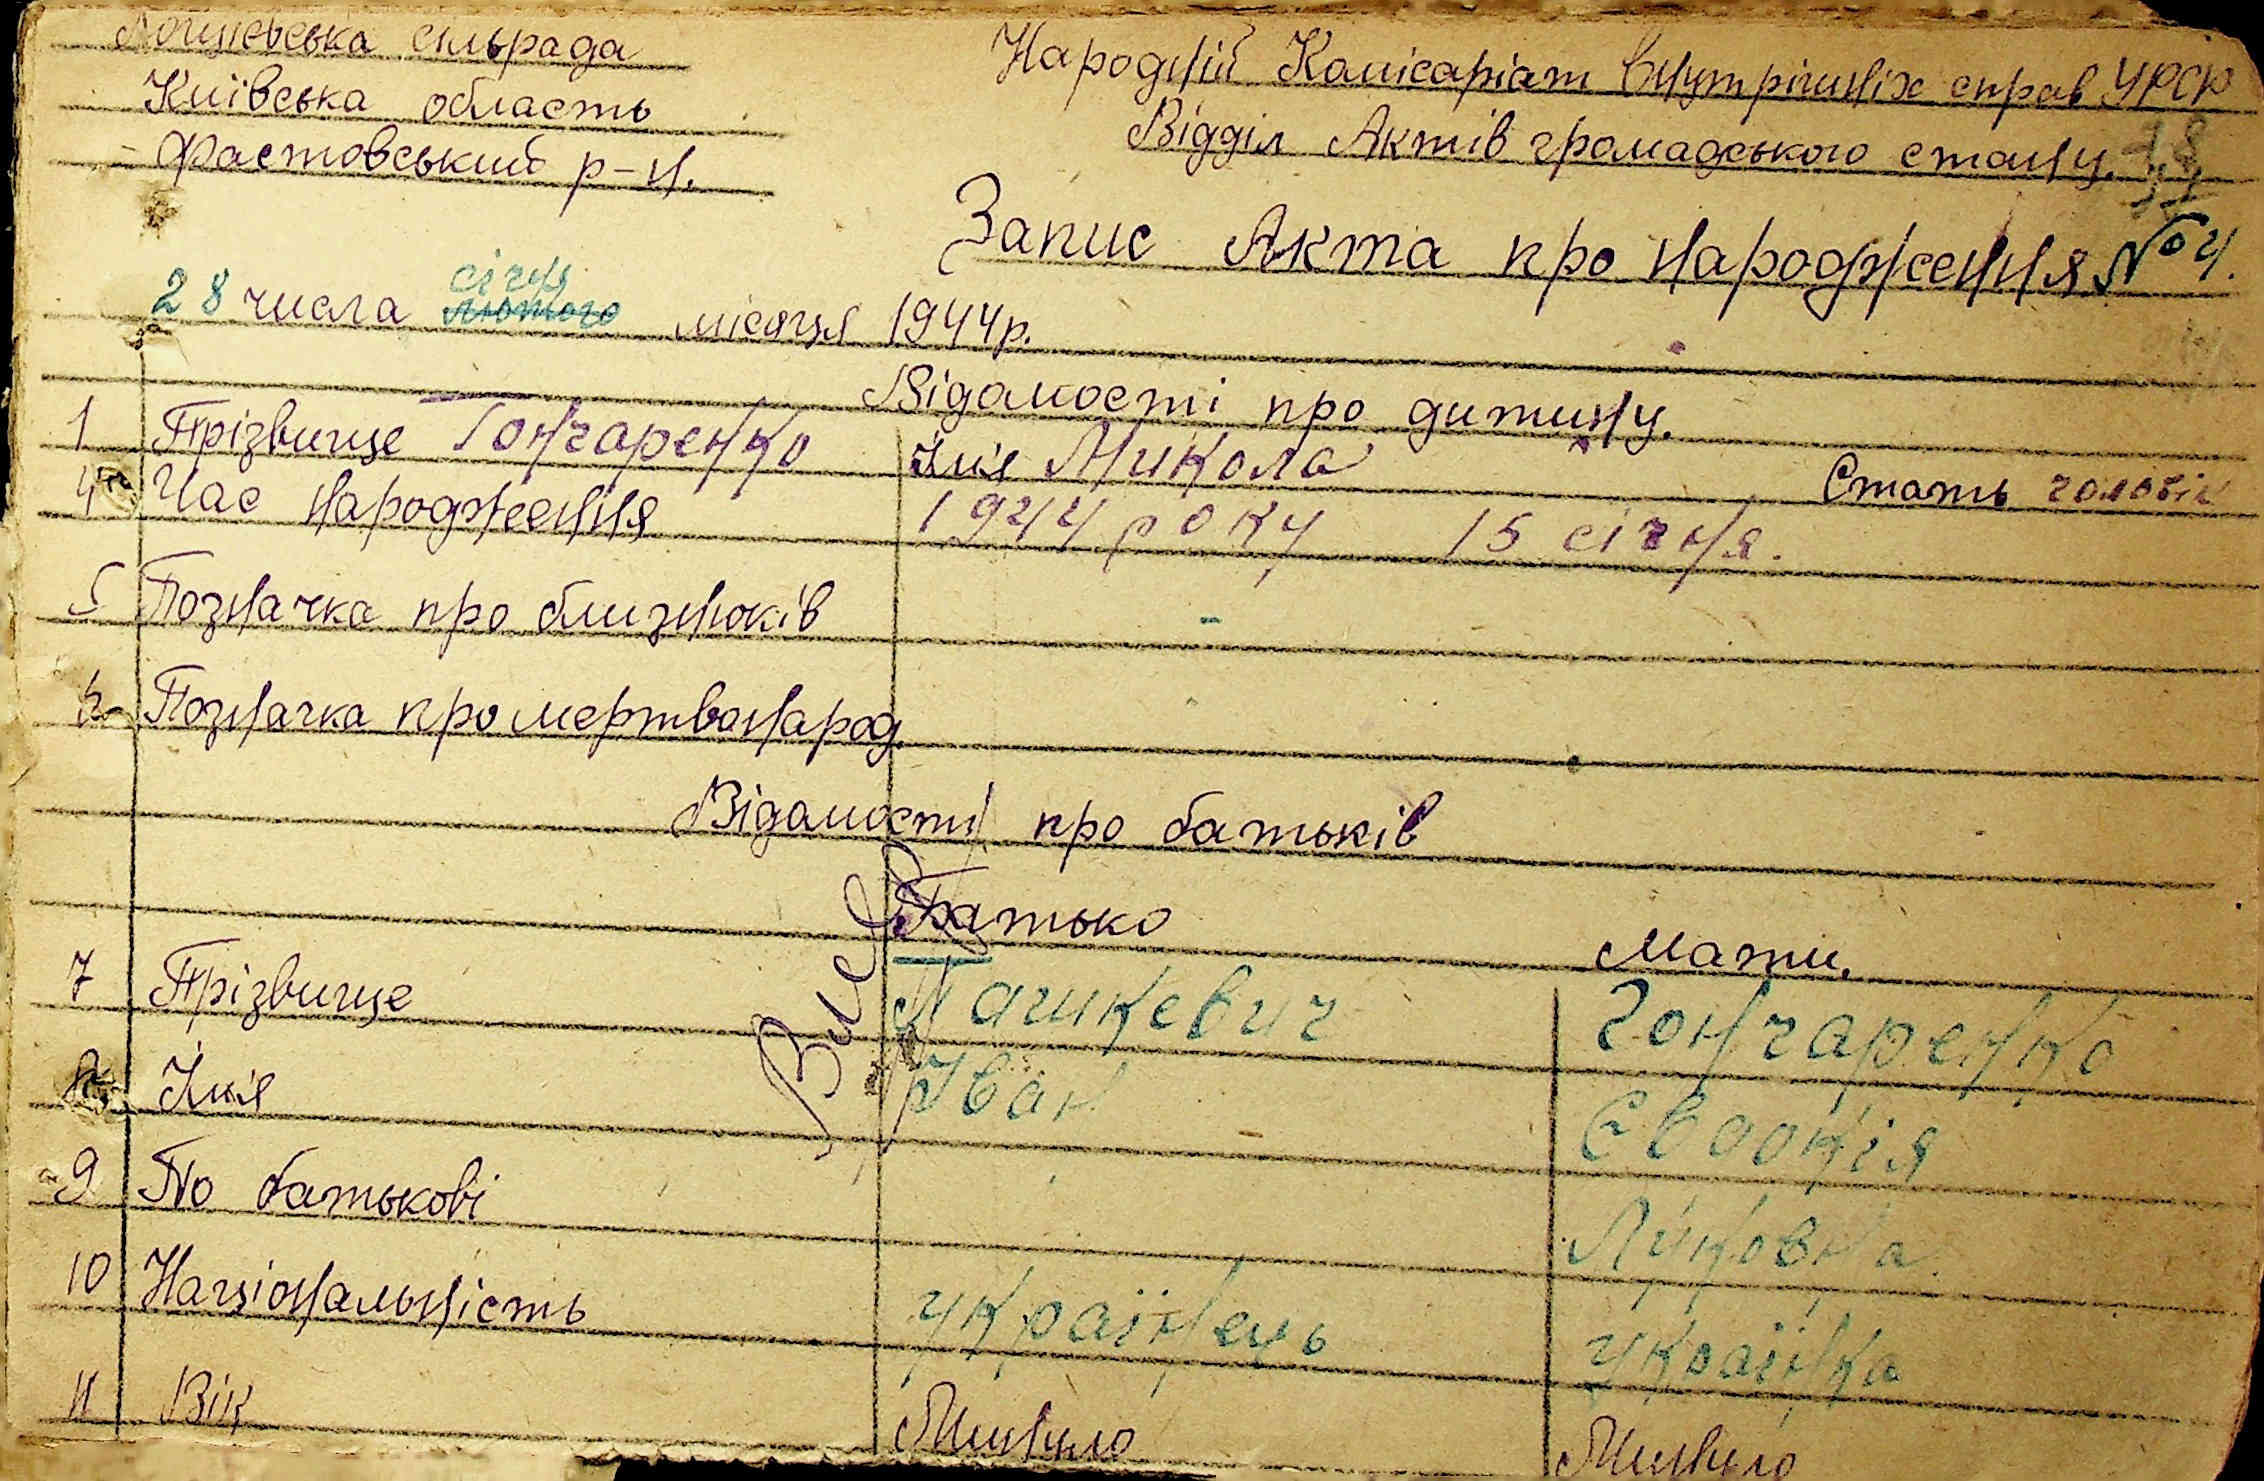 сільрада
Київська область
Фастовський р-н.
Народній Комісаріат внутрішніх справ УРСР
Відділ Актів громадського стану.
Запис Акта про народження № 4.
28 числа лютого січня місяця 1944 р.
Відомості про дитину.
1 Прізвище Гончаренко Імя Микола Стать чоловік
4 Час народження 1944 року 15 січня.
5 Позначка про близнюків -
6 Позначка про мертвонарод.
Відомості про батьків
Батько Мати.
7 Прізвище Пашкевич Гончаренко
8 Імя Іван Євдокія
9 По батькові Луковна
10 Національність українець українка
11 Вік Минуло Минуло